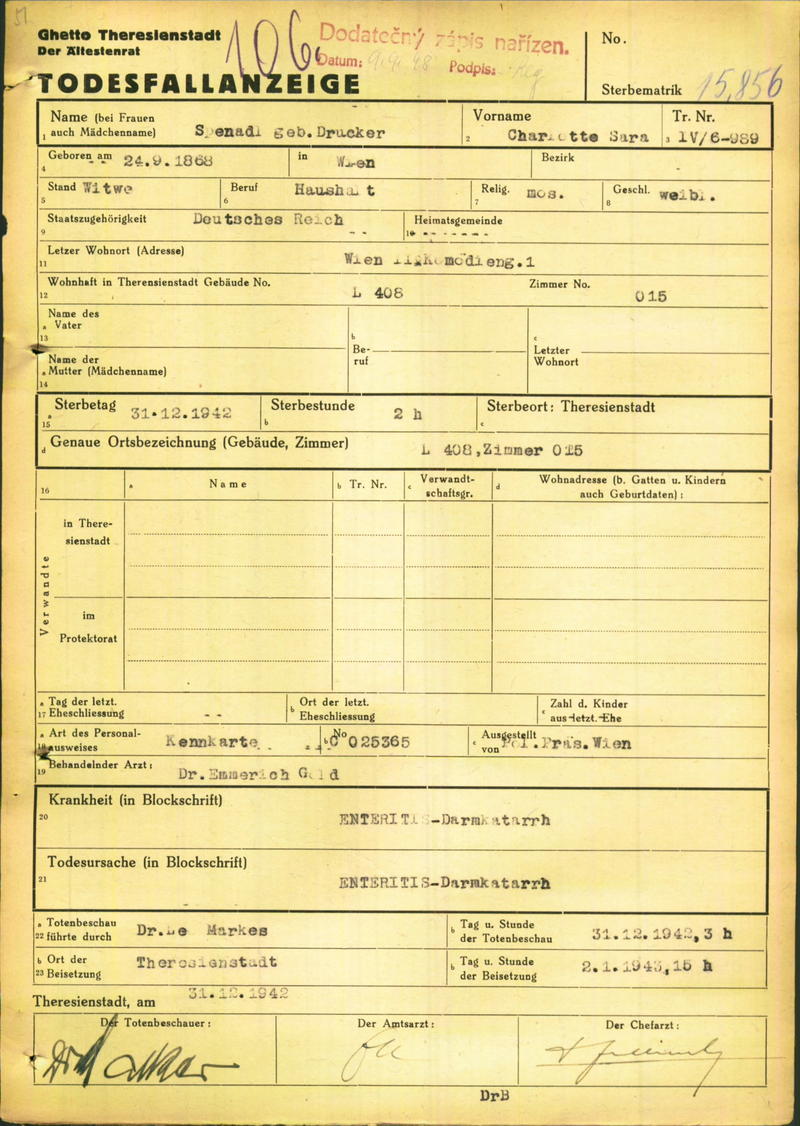 51
Ghetto Theresienstadt
Der Ältestenrat
106
Dodatečný zápis nařízen.
Datum: Podpis:
No.
TODESFALLANZEIGE
Sterbematrik 15,856
Name (bei Frauen
1 auch Mädchenname) Spenadi geb.Drucker
Vorname
2 Charlotte Sara
Tr. Nr.
3 IV/6-989
Geboren am 24.9.1868
4
in Wien
Bezirk
Stand Witwe
5
Beruf Haushalt
6
Relig. mos.
7
Geschl. weibl.
8
Staatszugehörigkeit Deutsches Reich
9
Heimatsgemeinde
10
Letzer Wohnort (Adresse)
11 Wien
Wohnhaft in Therensienstadt Gebäude No.
12 L 408
Zimmer No. 015
Name des
a Vater
13
b
Be-
ruf
c
Letzter
Wohnort
Name der
a Mutter (Mädchenname)
14
a Sterbetag 31.12.1942
15
Sterbestunde 2 h
b
Sterbeort: Theresienstadt
c
d Genaue Ortsbezeichnung (Gebäude, Zimmer) L 408,Zimmer 015
16
a Name
b Tr. Nr.
c Verwandt-
schaftsgr.
d Wohnadresse (b. Gatten u. Kindern
auch Geburtdaten) :
Verwandte
in There-
sienstadt
im
Protektorat
a Tag der letzt.
17 Eheschliessung - -
b Ort der letzt.
Eheschliessung
c Zahl d. Kinder
aus letzt. Ehe
a Art des Personal-
ausweises Kennkarte
b No C 025365
c Ausgestellt
von Pol.Präs.Wien
19 Behandelnder Arzt: Dr.Emmerich Gold
Krankheit (in Blockschrift)
20 ENTERITIS-Darmkatarrh
Todesursache (in Blockschrift)
21 ENTERITIS-Darmkatarrh
a Totenbeschau
22 führte durch Dr. Markes
b Tag u. Stunde
der Totenbeschau 31.12.1942,3 h
b Ort der
23 Beisetzung Theresienstadt
b Tag u. Stunde
der Beisetzung 2.1.1943,15 h
Theresienstadt, am 31.12.1942
Der Totenbeschauer:
Der Amtsarzt:
Der Chefarzt:
DrB